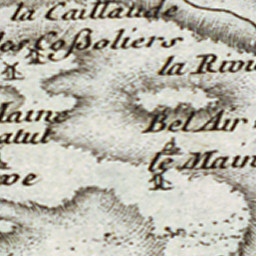 la Caillaude
les Coßoliers
la Rivi
Maine
Bel Air
atut
le Main
we